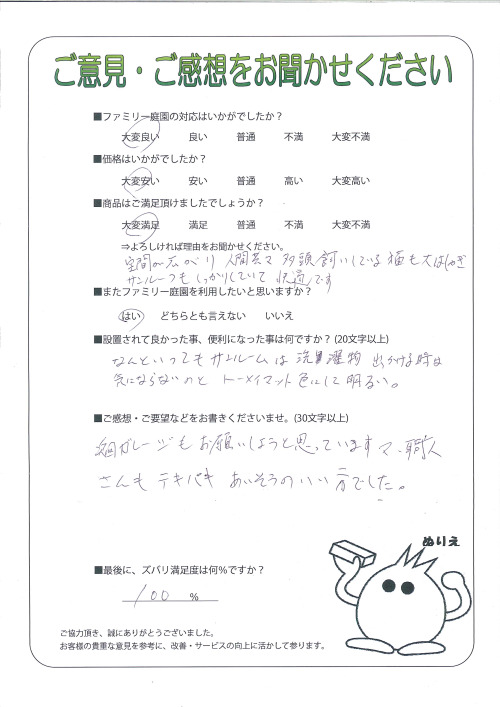 ご意見・ご感想をお聞かせください
■ファミリー庭園の対応はいかがでしたか？
大変良い 良い 普通 不満 大変不満
■価格はいかがでしたか？
大変安い 安い 普通 高い 大変高い
■商品はご満足頂けましたでしょうか？
大変満足 満足 普通 不満 大変不満
⇒よろしければ理由をお聞かせください。
空間が広がり 人間共々 多頭飼いしている猫も大はしゃぎ
サンルーフもしっかりしていて 快適です
■またファミリー庭園を利用したいと思いますか？
はい どちらとも言えない いいえ
■設置されて良かった事、便利になった事は何ですか？(20文字以上)
なんといってもサンルームは 洗濯物 出かける時も
気にならないのと トーメイマット色にして明るい。
■ご感想・ご要望などをお書きくださいませ。(30文字以上)
次回ガレージもお願いしようと思っていますマ、職人
さんも テキパキ あいそうのいい方でした。
ぬりえ
■最後に、ズバリ満足度は何％ですか？
100 %
ご協力頂き、誠にありがとうございました。
お客様の貴重な意見を参考に、改善・サービスの向上に活かして参ります。